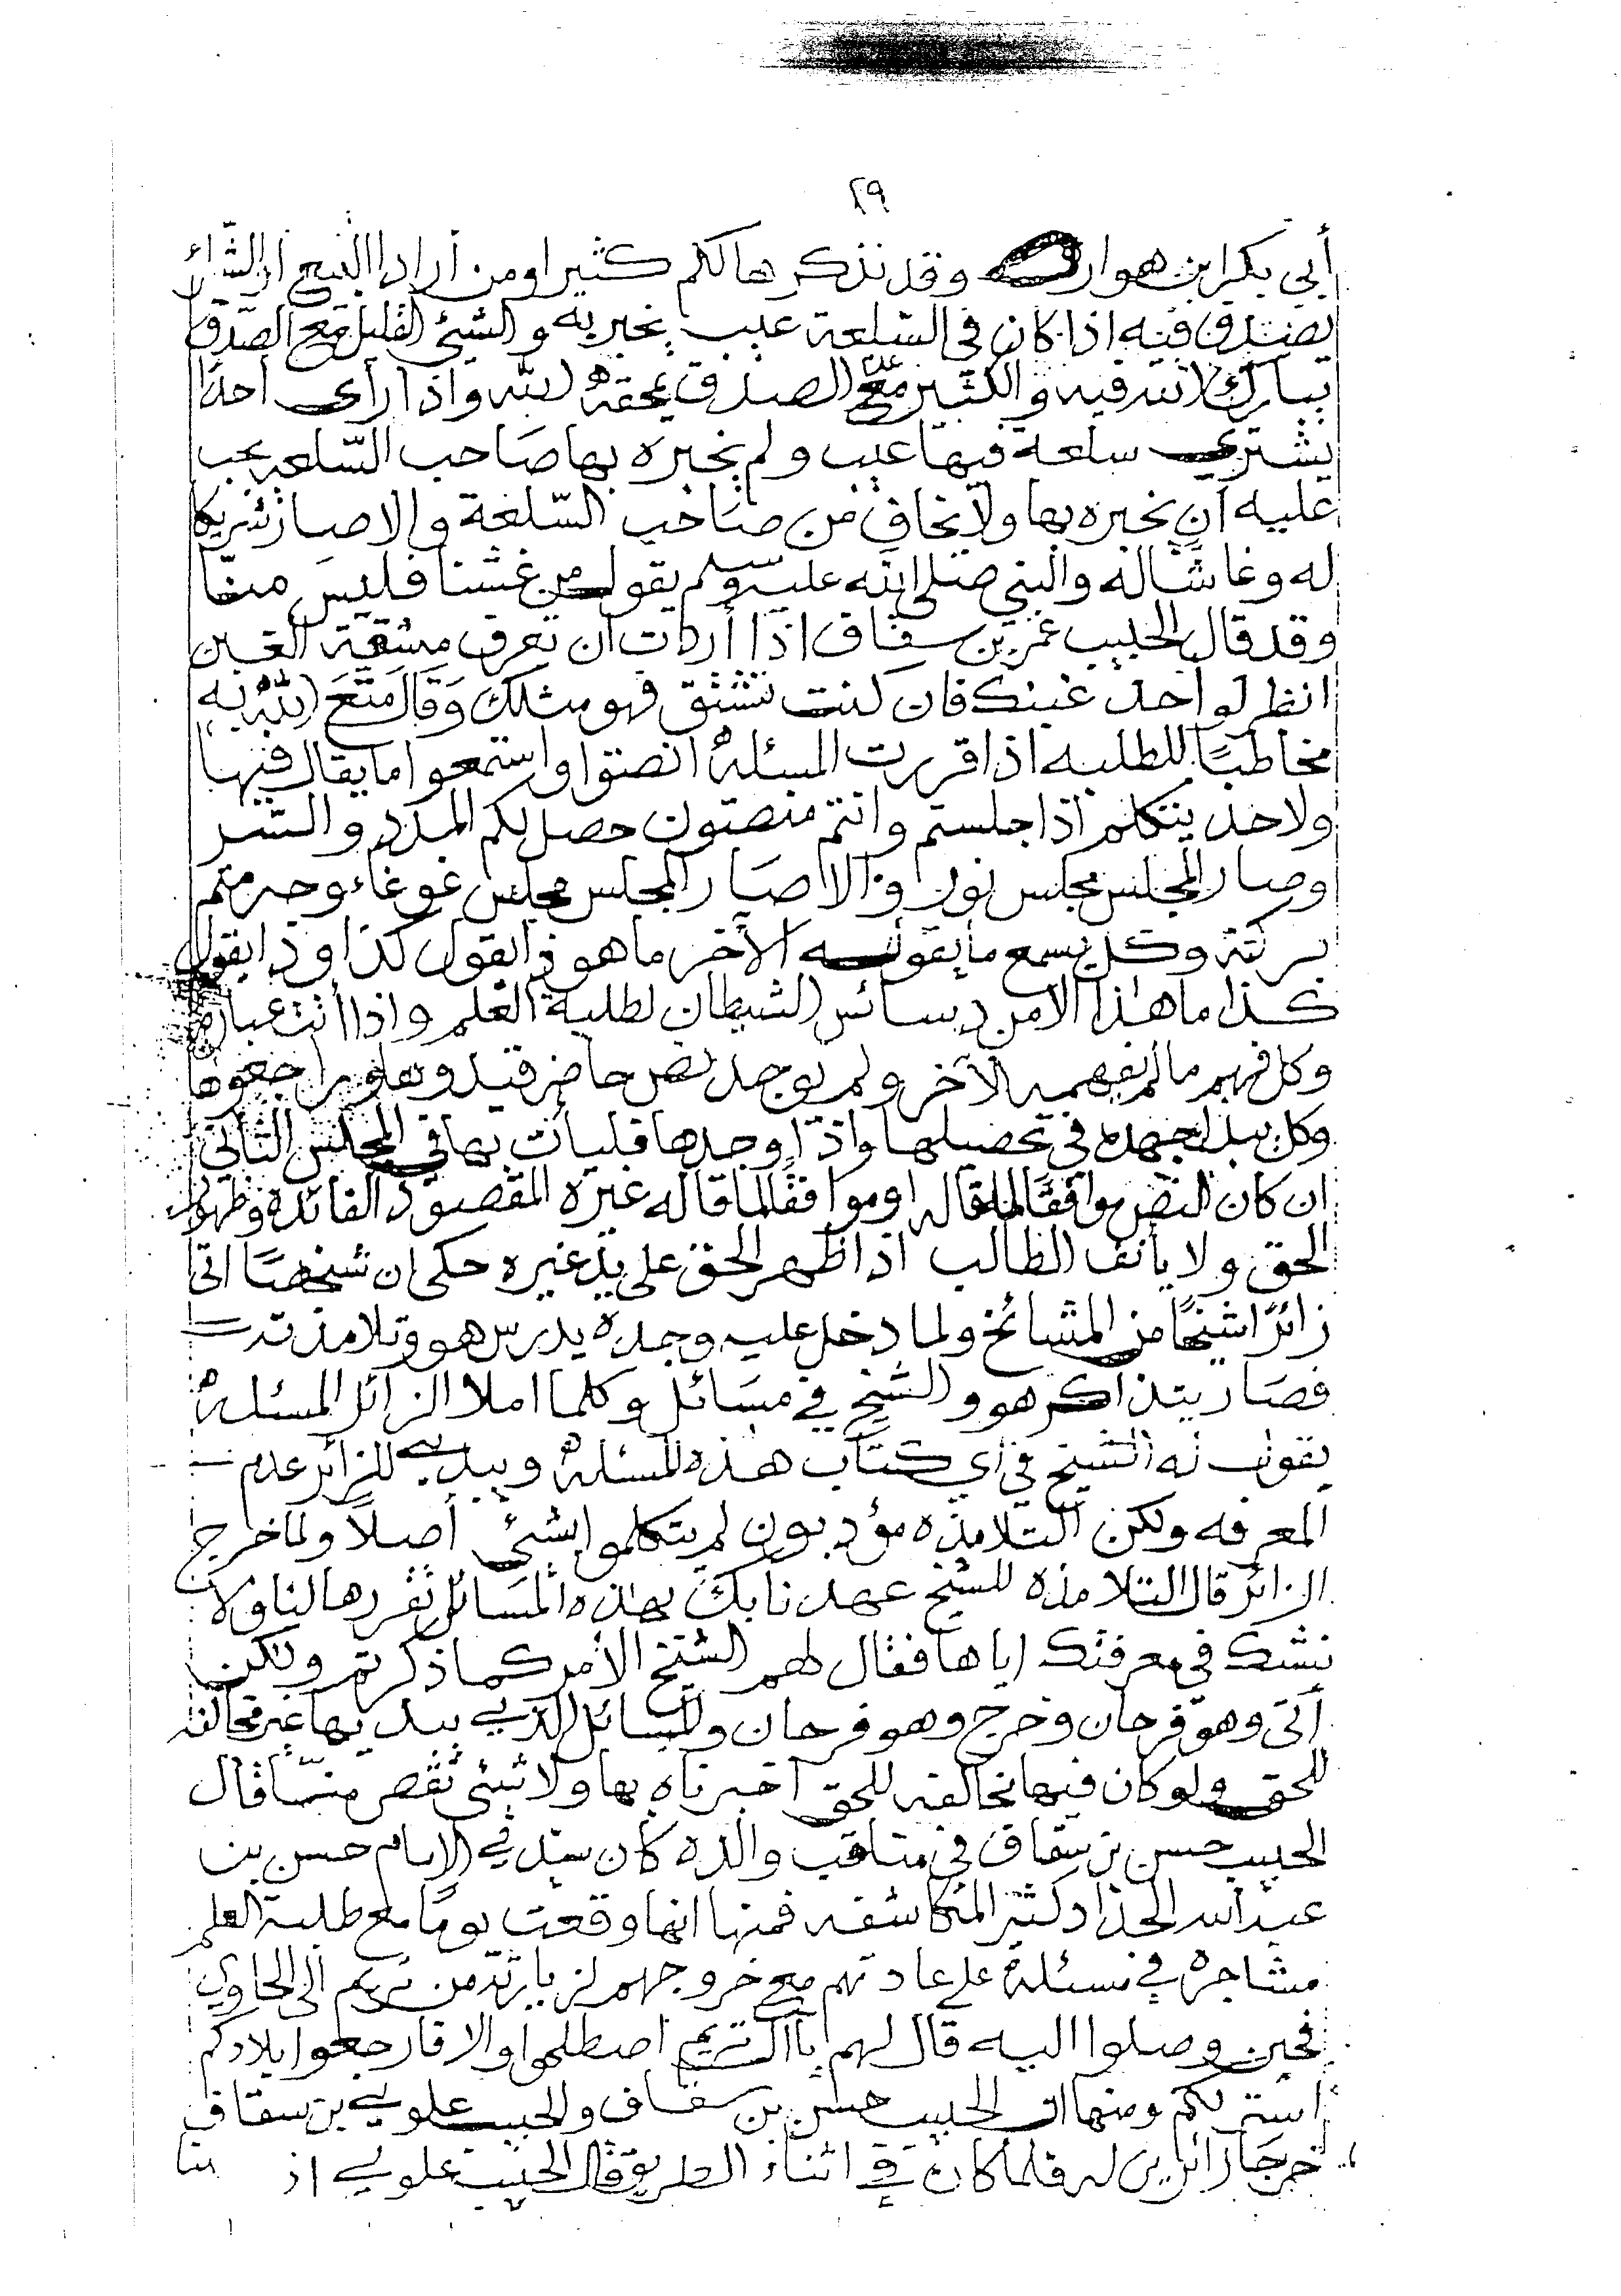 ٢٩
أبي بكر ابن هوار وقد نذكرها لكم كثيرا ومن أراد البيع أو الشراء
يصدق فيه اذا كان في السّلعة عيب يخبر به والشيئ القليل مع الصّدق
يبارك الله فيه والكثير مع عدم الصدق يمحقه الله واذا رأى احدًا
يشتري سلعة فيها عيب ولم يخبره بها صاحب السّلعه يجب
عليه ان يخبره بها ولا يخاف من صاحب السّلعة والا صار شريكا
له وغاشّا له والنبي صلى الله عليه وسلم يقول من غشنا فليس منّا
وقد قال الحبيب عمر بن سقاف اذا أردت ان تعرف مشقة الغبن
انظر لو احد غبنك فان كنت تشتق فهو مثلك وَقَالَ مَتَّعَ الله به
مخاطبًا للطلبه اذا قررت المسئلة انصتوا واستمعوا ما يقال فيها
ولا حد يتكلم اذا جلستم وانتم منصتون حصل لكم المدد والسّر
وصار المجلس مجلس نور والا صار المجلس مجلس غوغاء وحرمتم
بركته وكل يسمع ما يقوله الآخر ما هو ذا يقول كذا وذا يقول
كذا ما هذا الا من دسائس الشيطان لطلبة العلم واذا أتت عباره
وكل فهم ما لم يفهمه الآخر ولم يوجد نص حاضر قيدوها وراجعوها
وكل يبذل جهده في تحصيلها واذا وجدها فليأت بها في المجلس الثاني
ان كان النص موافقًا لما قاله او موافقًا لما قاله غيره المقصود الفائدة وظهور
الحق ولا يأنف الطالب اذا ظهر الحق على يد غيره حكى ان شخصًا اتى
زائرًا شيخًا من المشائخ ولما دخل عليه وجده يدرس هو وتلامذته
فصار يتذاكر هو والشيخ في مسائل وكلما املا الزائر المسئلة
يقول له الشيخ في اي كتاب هذه المسئلة ويبدي للزائر عدم
المعرفه ولكن التلامذه مؤدبون لم يتكلموا بشيئ أصلًا ولما خرج
الزائر قال التلامذه للشيخ عهدنا بك بهذه المسائل تقررها لنا ولا
نشك في معرفتك اياها فقال لهم الشيخ الأمر كما ذكرتم ولكن
أتى وهو فرحان وخرج وهو فرحان والمسائل الذي يبديها غير مخالفه
للحق ولو كان فيها مخالفه للحق اخبرناه بها ولا شيئ نقص منّا قال
الحبيب حسن بن سقاف في مناقب والده كان سيدي الامام حسن بن
عبد الله الحداد كثير المكاشفه فمنها انها وقعت يومًا مع طلبة العلم
مشاجرة في مسئلة على عادتهم مع خروجهم لزيارته من تريم الى الحاوي
فحين وصلوا اليه قال لهم يا آل تريم اصطلحوا والا فارجعوا بلادكم
استر لكم ومنها ان الحبيب حسن بن سقاف والحبيب علوي بن سقاف
خرجا زائرين له فلما كان في اثناء الطريق قال الحبيب علوي اذ